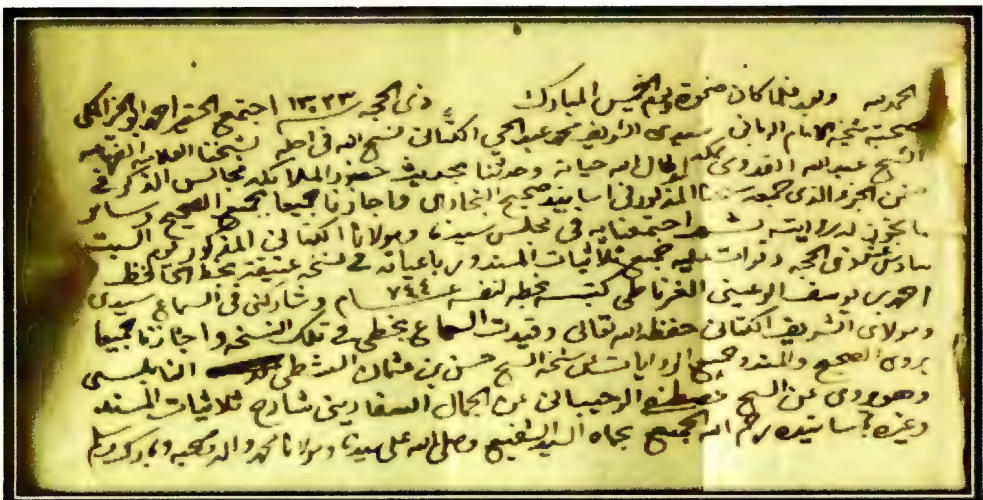 الحمد لله وبعد فلما كان ضحوة يوم الخميس المبارك ذي الحجه ١٣٢٣ اجتمع الحقير احمد ابو الخير المكي
بصحبة شيخه الامام الرباني سيدي الشريف محمد عبد الحي الكتاني فسح الله في اجله بشيخنا العلامه الفهامه
الشيخ عبد الله القدومي بمكه اطال الله حياته وحدثنا بحديث حضور الملائكه مجالس الذكر في
ضمن الجزء الذي جمعه المذكور في اسانيد صحيح البخاري واجازنا جميعا بجميع الصحيح وسائر
ما يجوز له روايته ثم اجتمعنا به في مجلس سيدنا ومولانا الكتاني المذكور يوم السبت
سادس ذي الحجه وقرات عليه جميع ثلاثيات المسند ورباعياته في نسخه عتيقه بخط الحافظ
احمد بن يوسف الرعيني الغرناطي كتبه بخطه لنفسه عام ٧٤٤ وشاركني في السماع سيدي
ومولاي الشريف الكتاني حفظه الله تعالى وقيدت السماع بخطي في تلك النسخه واجازنا جميعا
بروى الصحيح والمسند وجميع الروايات عن شيخه الشيخ حسن بن عثمان الشطي النابلسي
وهو روى عن الشيخ مصطفى الرحيباني عن الجمال السفاريني شارح ثلاثيات المسند
وغيره باسانيده رحم الله الجميع بجاه السيد الشفيع وصلى الله على سيدنا ومولانا محمد واله وصحبه وبارك وسلم